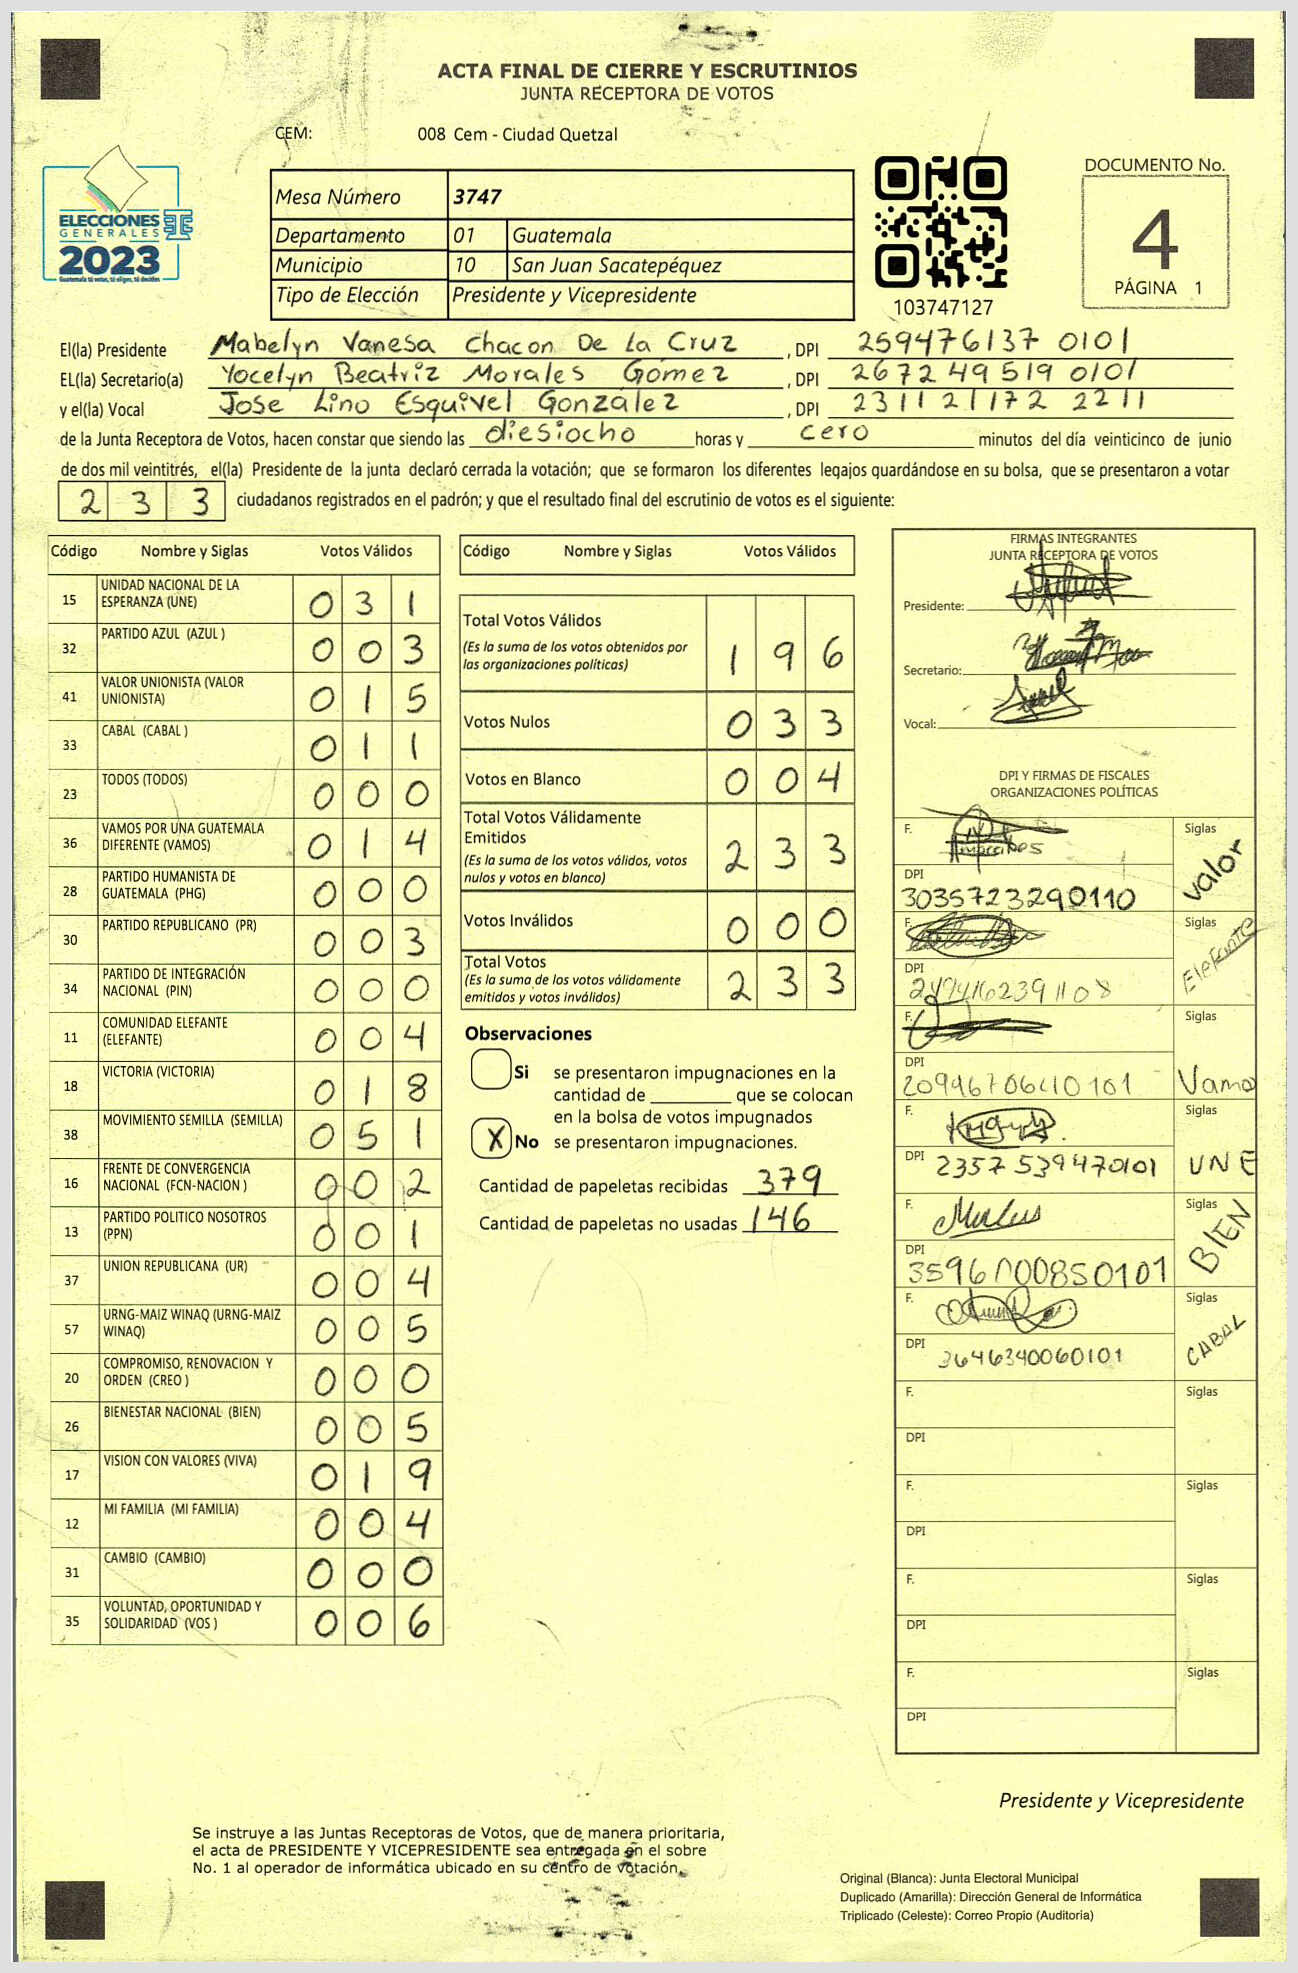 ACTA FINAL DE CIERRE Y ESCRUTINIOS
JUNTA RECEPTORA DE VOTOS
CEM: 008 Cem - Ciudad Quetzal
ELECCIONES
GENERALES
2023
Guatemala tú votas, tú eliges, tú decides
Mesa Número 3747
Departamento 01 Guatemala
Municipio 10 San Juan Sacatepéquez
Tipo de Elección Presidente y Vicepresidente
103747127
DOCUMENTO No.
4
PÁGINA 1
El(la) Presidente Mabelyn Vanesa Chacon De La Cruz , DPI 259476137 0101
EL(la) Secretario(a) Yocelyn Beatriz Morales Gómez , DPI 2672 49519 0101
y el(la) Vocal Jose Lino Esquivel González , DPI 231121172 2211
de la Junta Receptora de Votos, hacen constar que siendo las diesiocho horas y cero minutos del día veinticinco de junio
de dos mil veintitrés, el(la) Presidente de la junta declaró cerrada la votación; que se formaron los diferentes legajos guardándose en su bolsa, que se presentaron a votar
233 ciudadanos registrados en el padrón; y que el resultado final del escrutinio de votos es el siguiente:
Código Nombre y Siglas Votos Válidos
15 UNIDAD NACIONAL DE LA ESPERANZA (UNE) 031
32 PARTIDO AZUL (AZUL ) 003
41 VALOR UNIONISTA (VALOR UNIONISTA) 015
33 CABAL (CABAL ) 011
23 TODOS (TODOS) 000
36 VAMOS POR UNA GUATEMALA DIFERENTE (VAMOS) 014
28 PARTIDO HUMANISTA DE GUATEMALA (PHG) 000
30 PARTIDO REPUBLICANO (PR) 003
34 PARTIDO DE INTEGRACIÓN NACIONAL (PIN) 000
11 COMUNIDAD ELEFANTE (ELEFANTE) 004
18 VICTORIA (VICTORIA) 018
38 MOVIMIENTO SEMILLA (SEMILLA) 051
16 FRENTE DE CONVERGENCIA NACIONAL (FCN-NACION ) 002
13 PARTIDO POLITICO NOSOTROS (PPN) 001
37 UNION REPUBLICANA (UR) 004
57 URNG-MAIZ WINAQ (URNG-MAIZ WINAQ) 005
20 COMPROMISO, RENOVACION Y ORDEN (CREO ) 000
26 BIENESTAR NACIONAL (BIEN) 005
17 VISION CON VALORES (VIVA) 019
12 MI FAMILIA (MI FAMILIA) 004
31 CAMBIO (CAMBIO) 000
35 VOLUNTAD, OPORTUNIDAD Y SOLIDARIDAD (VOS ) 006
Código Nombre y Siglas Votos Válidos
Total Votos Válidos 196
(Es la suma de los votos obtenidos por
las organizaciones políticas)
Votos Nulos 033
Votos en Blanco 004
Total Votos Válidamente
Emitidos 233
(Es la suma de los votos válidos, votos
nulos y votos en blanco)
Votos Inválidos 000
Total Votos 233
(Es la suma de los votos válidamente
emitidos y votos inválidos)
Observaciones
Si se presentaron impugnaciones en la
cantidad de ________ que se colocan
en la bolsa de votos impugnados
X No se presentaron impugnaciones.
Cantidad de papeletas recibidas 379
Cantidad de papeletas no usadas 146
FIRMAS INTEGRANTES
JUNTA RECEPTORA DE VOTOS
Presidente:
Secretario:
Vocal:
DPI Y FIRMAS DE FISCALES
ORGANIZACIONES POLÍTICAS
F. Siglas valor
DPI 3035723290110
F. Siglas Elefante
DPI
F. Siglas Vamo
DPI 2094670640101
F. Siglas UNE
DPI 2357 539470101
F. Siglas BIEN
DPI
F. Siglas CABAL
DPI 3646340060101
F. Siglas
DPI
F. Siglas
DPI
F. Siglas
DPI
F. Siglas
DPI
Presidente y Vicepresidente
Se instruye a las Juntas Receptoras de Votos, que de manera prioritaria,
el acta de PRESIDENTE Y VICEPRESIDENTE sea entregada en el sobre
No. 1 al operador de informática ubicado en su centro de votación.
Original (Blanca): Junta Electoral Municipal
Duplicado (Amarilla): Dirección General de Informática
Triplicado (Celeste): Correo Propio (Auditoria)